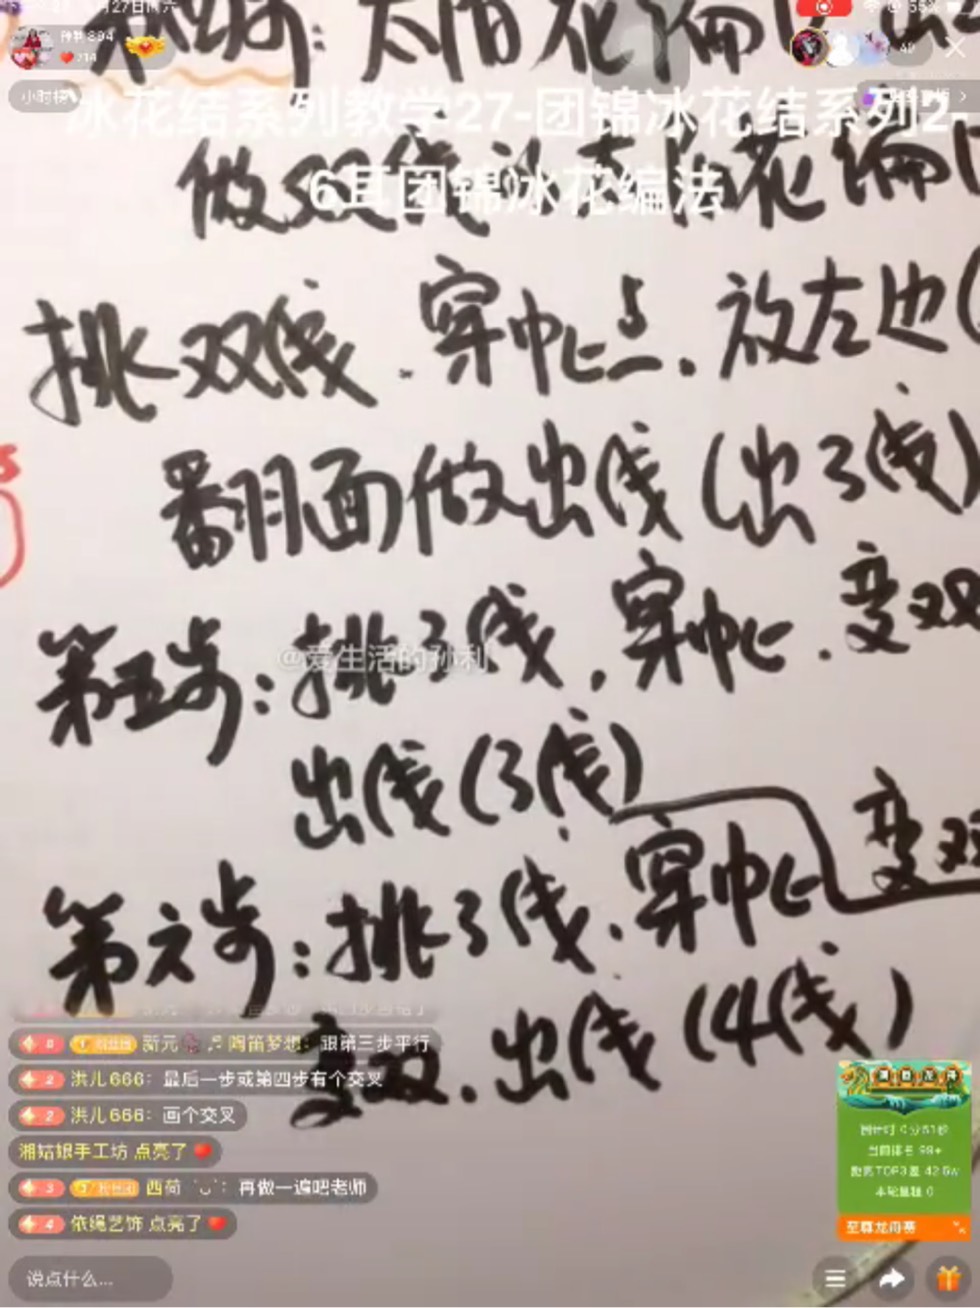 冰花结系列教学27-团锦冰花结系列2-
6耳团锦冰花编法
挑双线.穿中心点.放左边(
翻面做出线(出3线)
第五步:挑3线,穿中心.变双
@爱生活的孙利
出线(3线)
第六步:挑3线.穿中心 变双
变双.出线(4线)
新元 陶笛梦想:跟第三步平行
2 洪儿666:最后一步或第四步有个交叉
2 洪儿666:画个交叉
湘姑娘手工坊 点亮了
3 西荷:再做一遍吧老师
4 依绳艺饰 点亮了
至尊龙舟赛
说点什么...